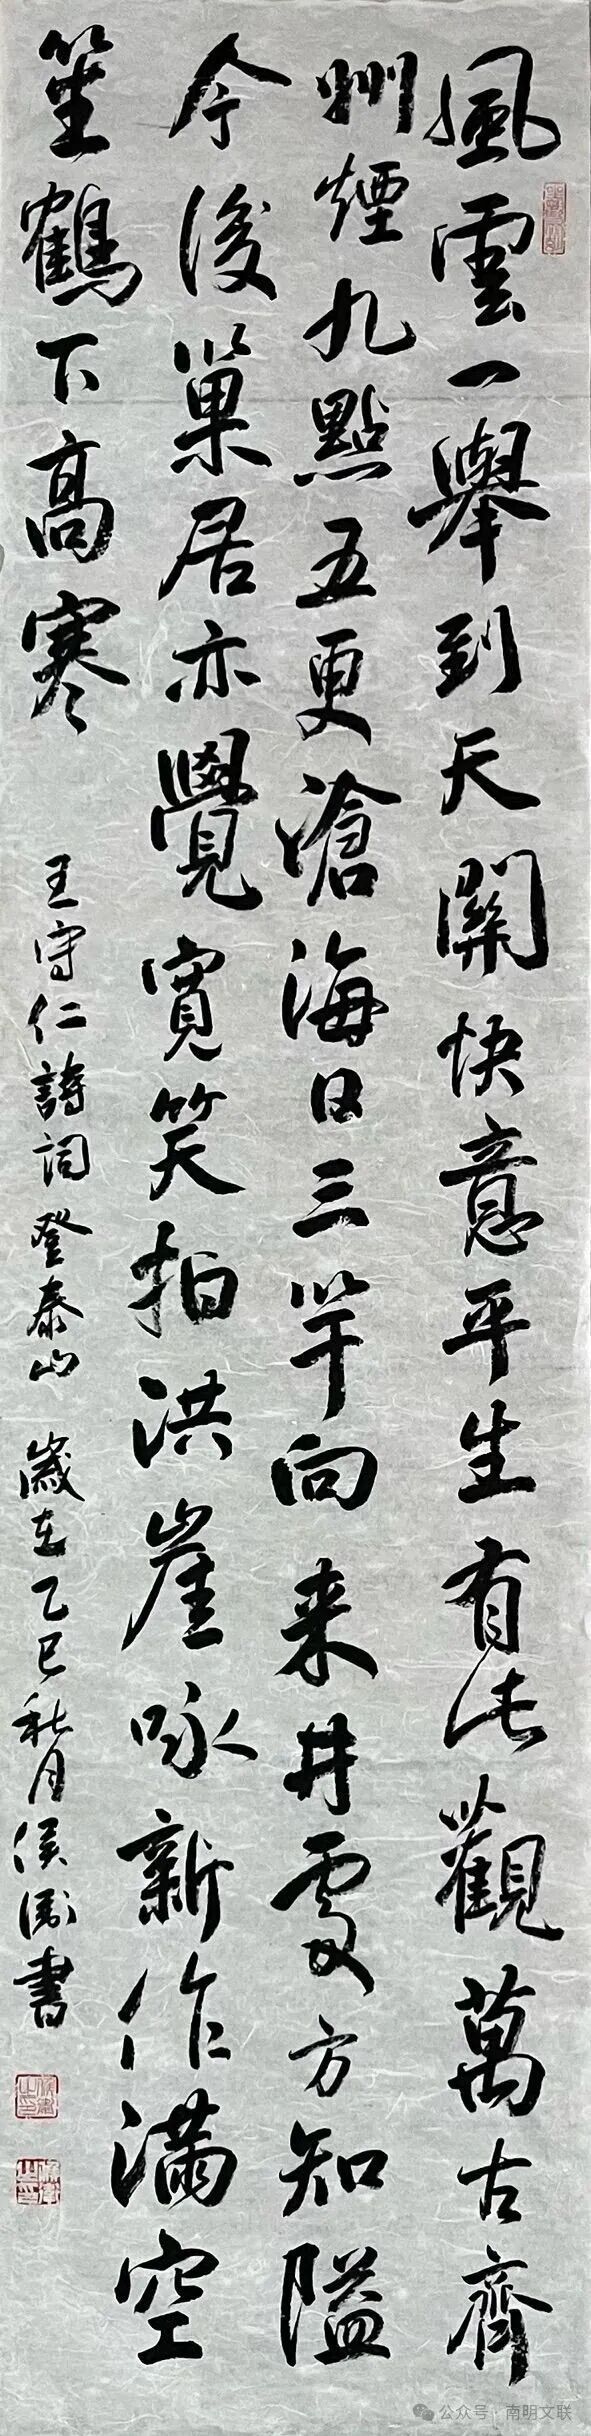 風雲一舉到天關快意平生有此觀萬古齊
州煙九點五更滄海日三竿向来井處方知隘
今後巢居亦覺寬笑拍洪崖咏新作滿空
笙鶴下高寒
王守仁詩詞登泰山 歲在乙巳秋月侯 書
公众号·南明文联